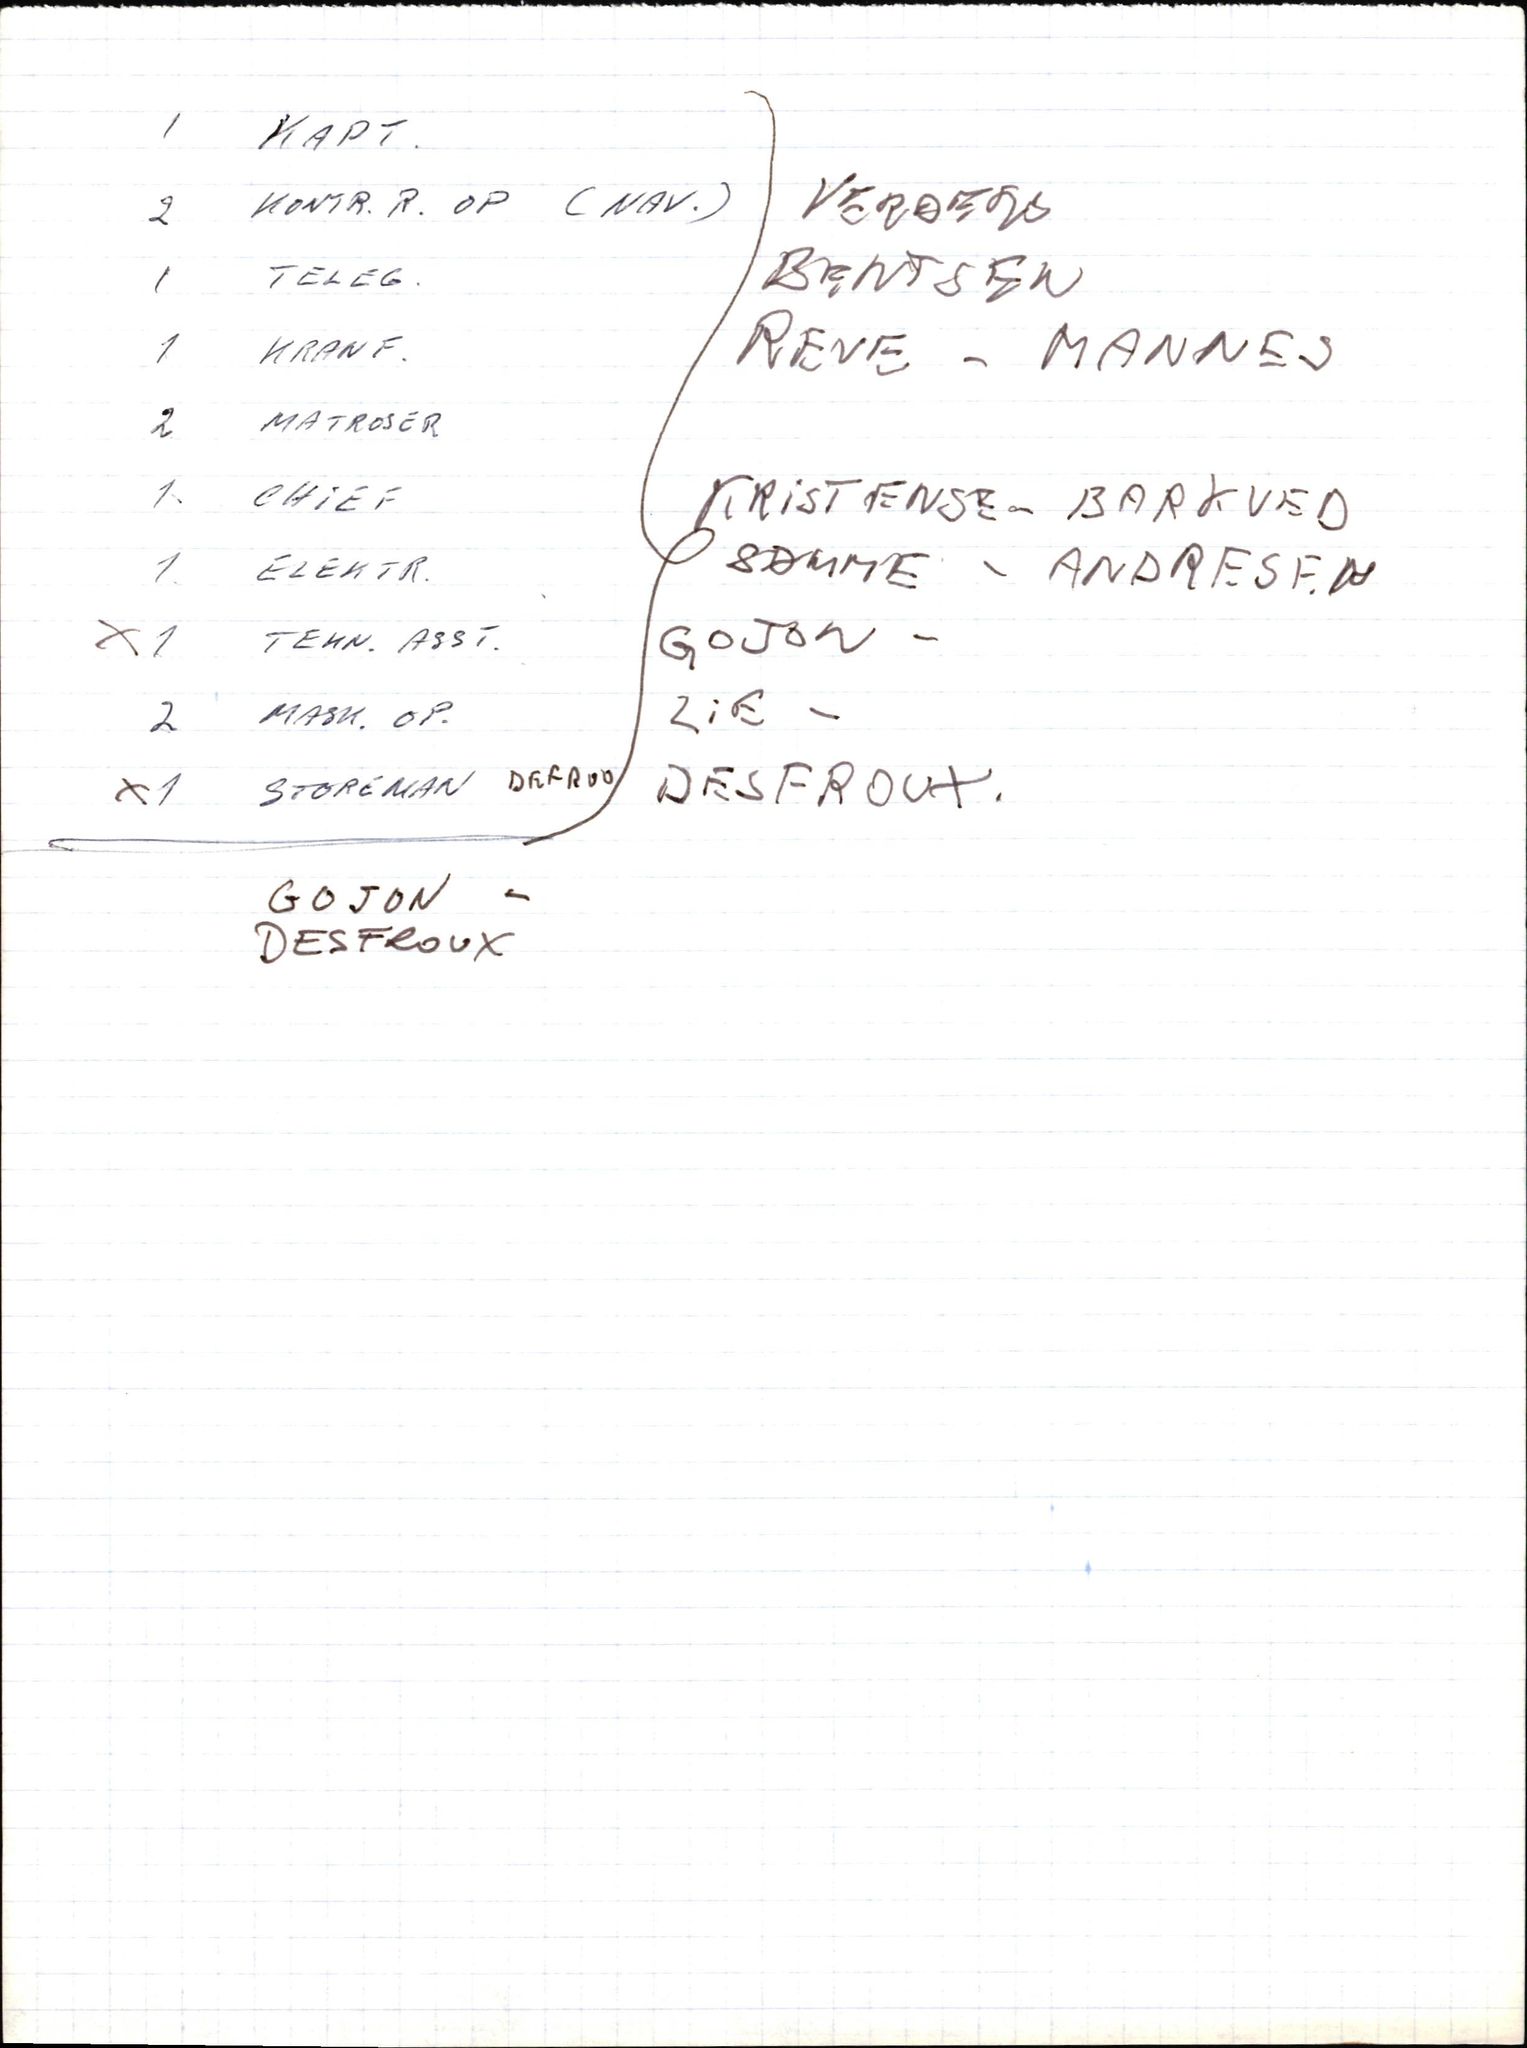 1 KAPT.
2 KONTR. R. OP (NAV.)
1 TELEG. BENTSEN
1 KRANF. REVE - MANNES
2 MATROSER
1. CHIEF KRISTENSE- BARKVED
1. ELEKTR. SØMME - ANDRESEN
X 1 TEKN. ASST. GOJON -
2 MASK. OP. LIE -
X 1 STOREMAN DEFROU DESFROUX.
GOJON -
DESFROUX